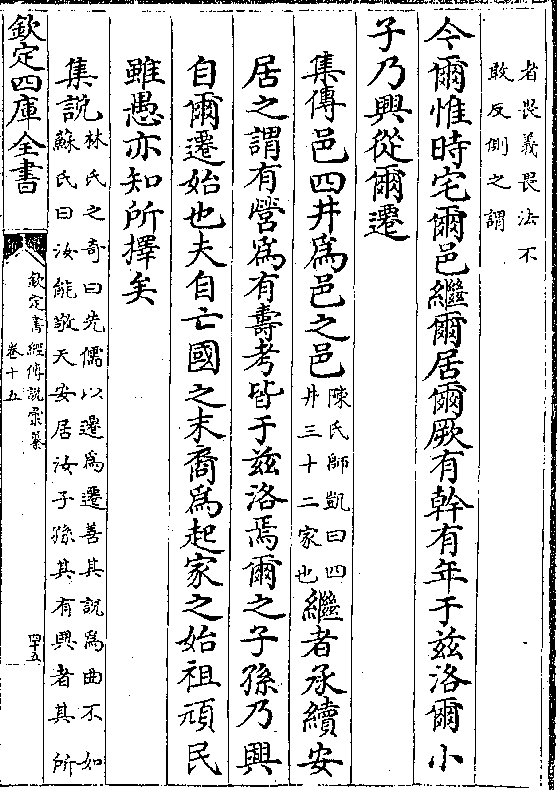 者畏義畏法不
敢反側之謂
今爾惟時宅爾邑繼爾居爾厥有幹有年于兹洛爾小
子乃興從爾遷
集傳邑四井爲邑之邑陳氏師凱曰四井三十二家也繼者承續安
居之謂有營爲有壽考皆于兹洛焉爾之子孫乃興
自爾遷始也夫自亡國之末裔爲起家之始祖頑民
雖愚亦知所擇矣
集說林氏之奇曰先儒以遷爲遷善其說爲曲不如
蘇氏曰汝能敬天安居汝子孫其有興者其所
欽定四庫全書
欽定書經傳說彙纂
卷十五
四十五